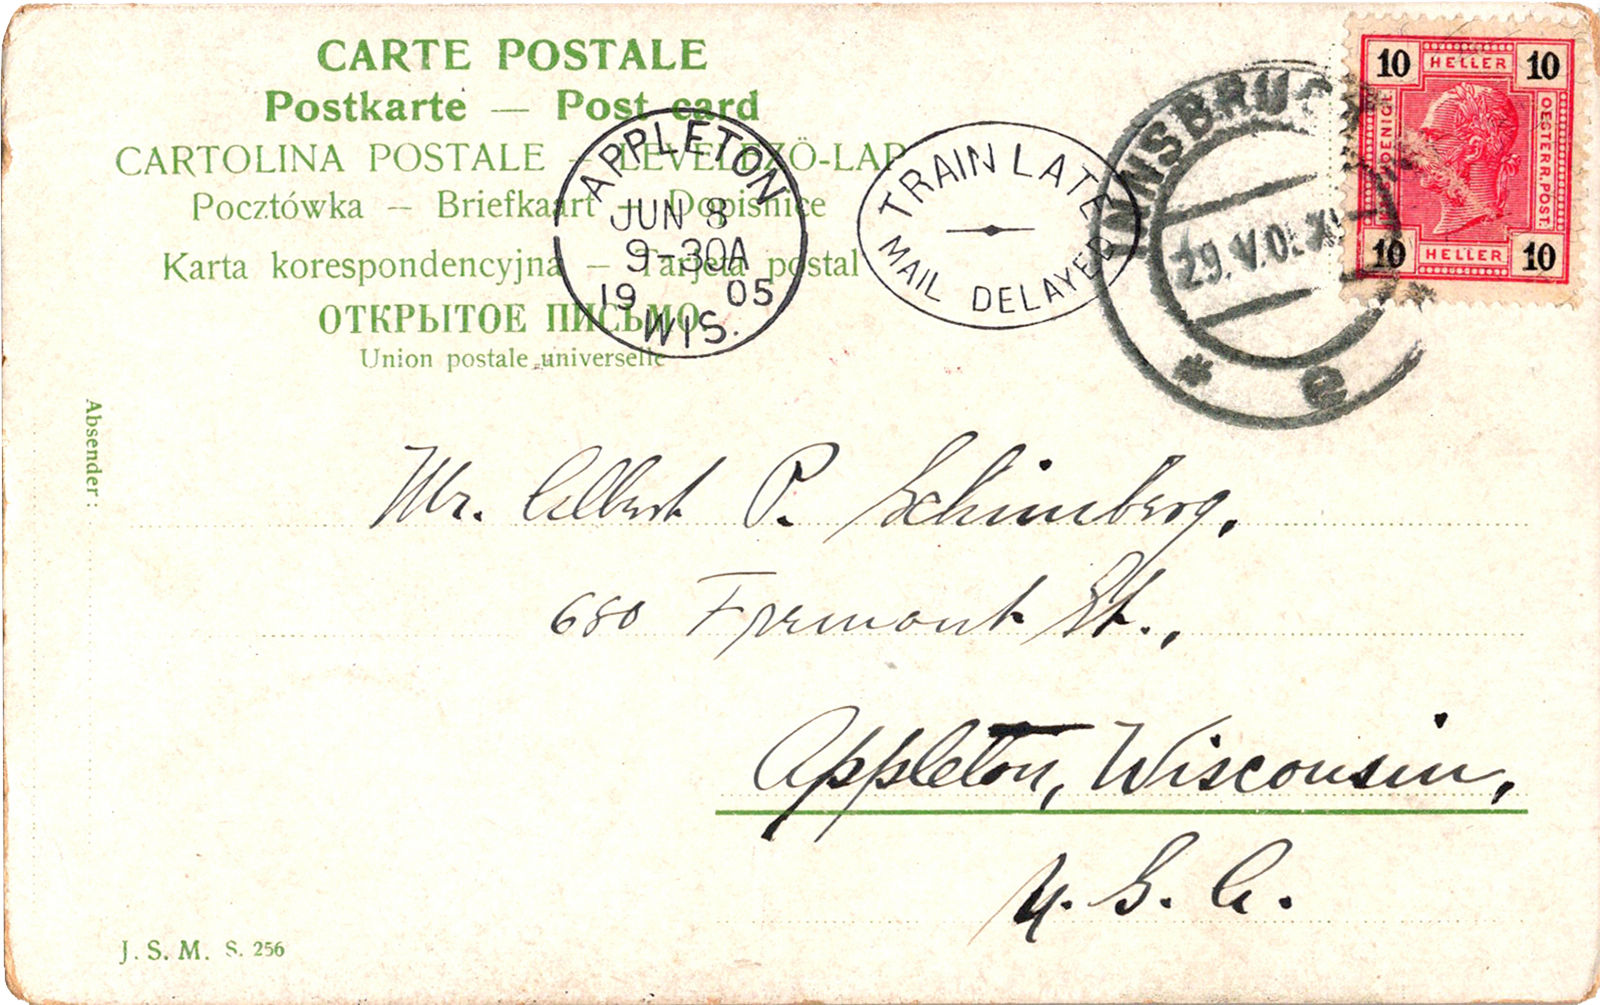 CARTE POSTALE
Postkarte — Post card
CARTOLINA POSTALE – LEVELEZÖ-LAP
Pocztówka – Briefkaart – Dopisnice
Karta korespondencyjna – Tarjeta postal
ОТКРЫТОЕ ПИСЬМО
Union postale universelle
APPLETON
JUN 8
9-30A
19 05
WIS.
TRAIN LATE
MAIL DELAYED
INNSBRUCK
29.V.05
10 HELLER 10
OESTERR. POST.
10 HELLER 10
Absender:
Mr. Albert P. Schimberg,
680 Fremont St.,
Appleton, Wisconsin,
U. S. A.
J. S. M. S. 256